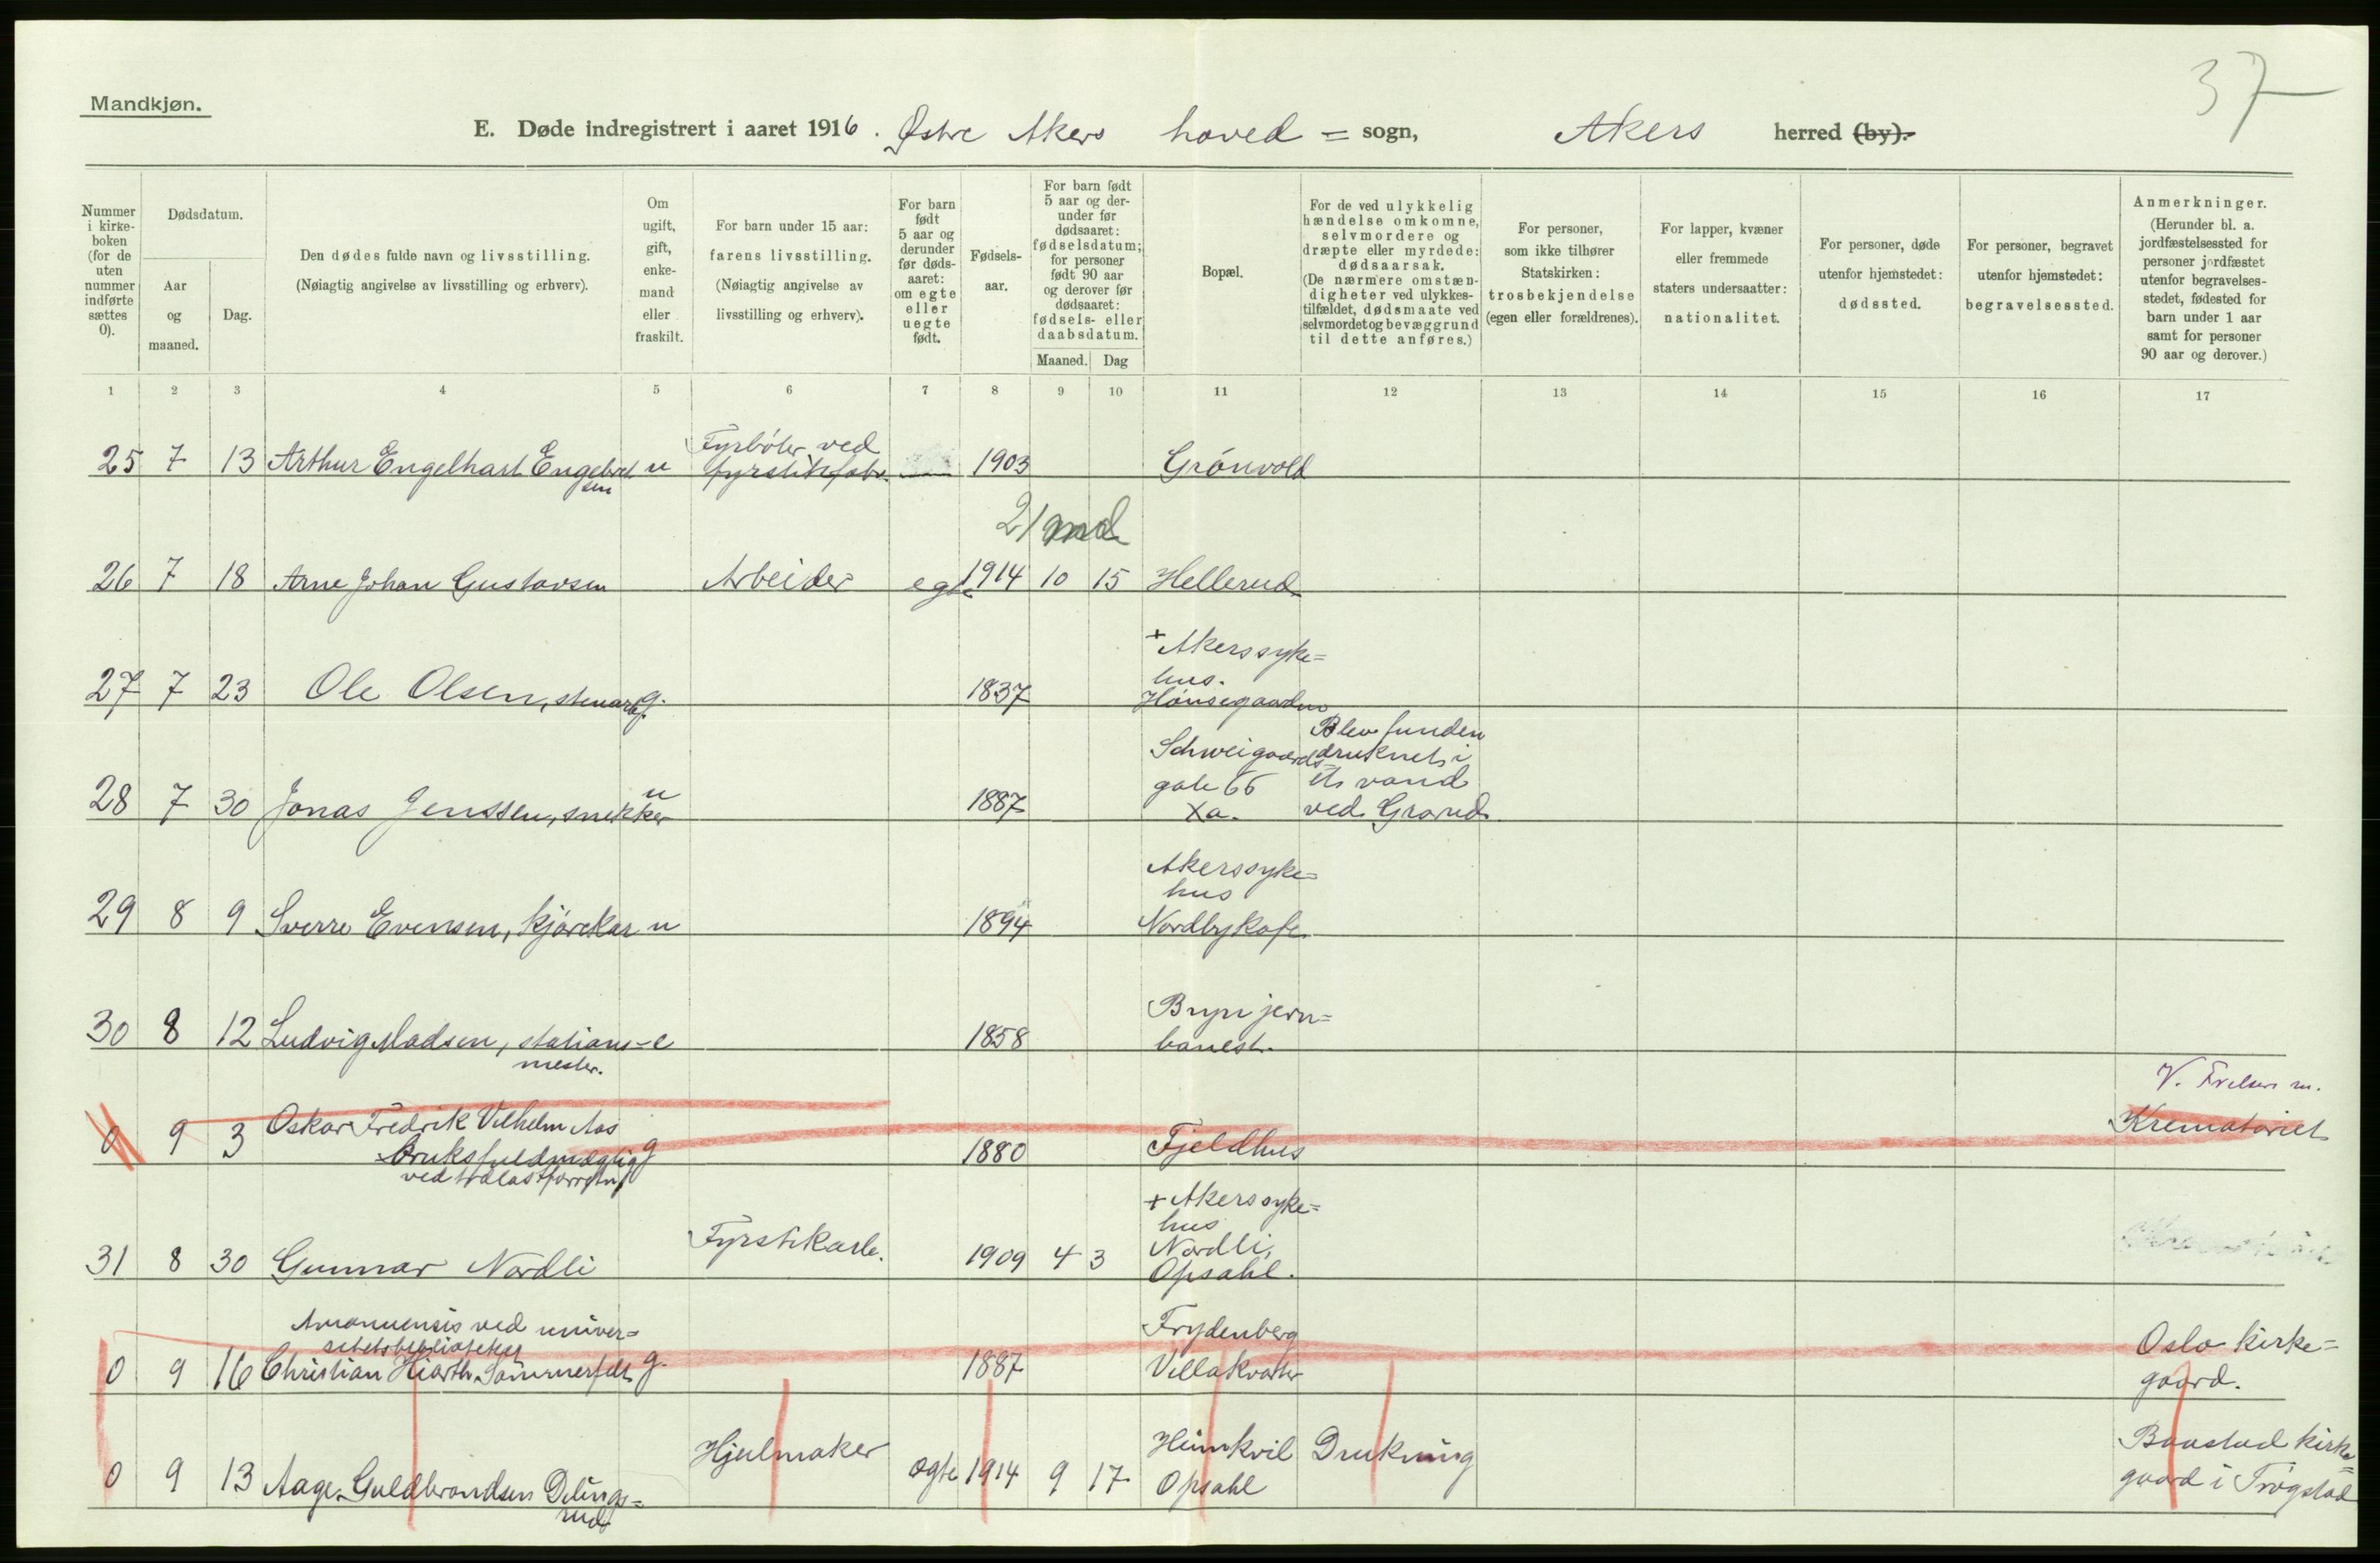 37
Mandkjøn.
E. Døde indregistrert i aaret 1916. Østre Akers hoved = sogn, Akers herred (by).
Nummer i kirke-boken (for de uten nummer indførte sættes 0).
Dødsdatum.
Aar og maaned.
Dag.
Den dødes fulde navn og livsstilling.
(Nøiagtig angivelse av livsstilling og erhverv).
Om ugift, gift, enke-mand eller fraskilt.
For barn under 15 aar: farens livsstilling. (Nøiagtig angivelse av livsstilling og erhverv).
For barn født 5 aar og derunder før døds-aaret: om egte eller uegte født.
Fødsels-aar.
For barn født 5 aar og der-under før dødsaaret: fødselsdatum; for personer født 90 aar og derover før dødsaaret: fødsels- eller daabsdatum.
Maaned. Dag
Bopæl.
For de ved ulykkelig hændelse omkomne, selvmordere og dræpte eller myrdede: dødsaarsak. (De nærmere omstæn-digheter ved ulykkes-tilfældet, dødsmaate ved selvmordet og bevæggrund til dette anføres.)
For personer, som ikke tilhører Statskirken: trosbekjendelse (egen eller forældrenes).
For lapper, kvæner eller fremmede staters undersaatter: nationalitet.
For personer, døde utenfor hjemstedet: dødssted.
For personer, begravet utenfor hjemstedet: begravelsessted.
Anmerkninger. (Herunder bl. a. jordfæstelsessted for personer jordfæstet utenfor begravelses-stedet, fødested for barn under 1 aar samt for personer 90 aar og derover.)
1 2 3 4 5 6 7 8 9 10 11 12 13 14 15 16 17
Fyrbøter ved
25 7 13 Arthur Engelhart Engebret u fyrstikfabr. 1903 Grönvold
sen
21 md
26 7 18 Arne Johan Gustavsen Arbeider egte 1914 10 15 Hellerud
+ Akerssyke=
hus.
27 7 23 Ole Olsen, stenarb. g. 1837 Hönsegaarden
Blev funden
Schweigaards= druknet i
gate 66 et vand
28 7 30 Jonas Jenssen, snekker u 1887 Xa. ved Grorud
Akerssyke=
hus
29 8 9 Sverre Evensen, kjörekar u 1894 Nordbykafe
Bryn jern=
30 8 12 Ludvig Madsen, stations= e 1858 banest.
mester.
V. Frelsers m.
0 9 3 Oskar Fredrik Vilhelm Aas Krematoriet
Bruksfuldmægtig g 1880 Fjeldhus
ved
+ Akerssyke=
hus
Fyrstikarb. Nordli,
31 8 30 Gunnar Nordli 1909 4 3 Opsahl.
Amanuensis ved univer= Frydenberg
sitetsbiblioteket Oslo kirke=
0 9 16 Christian Hiorth Sömmerfelt g. 1887 Villakvarter gaard.
Hjulmaker Heimkvil Drukning Baastad kirke=
0 9 13 Aage Guldbrandsen Dilings= ægte 1914 9 17 Opsahl gaard i Trögstad
rud